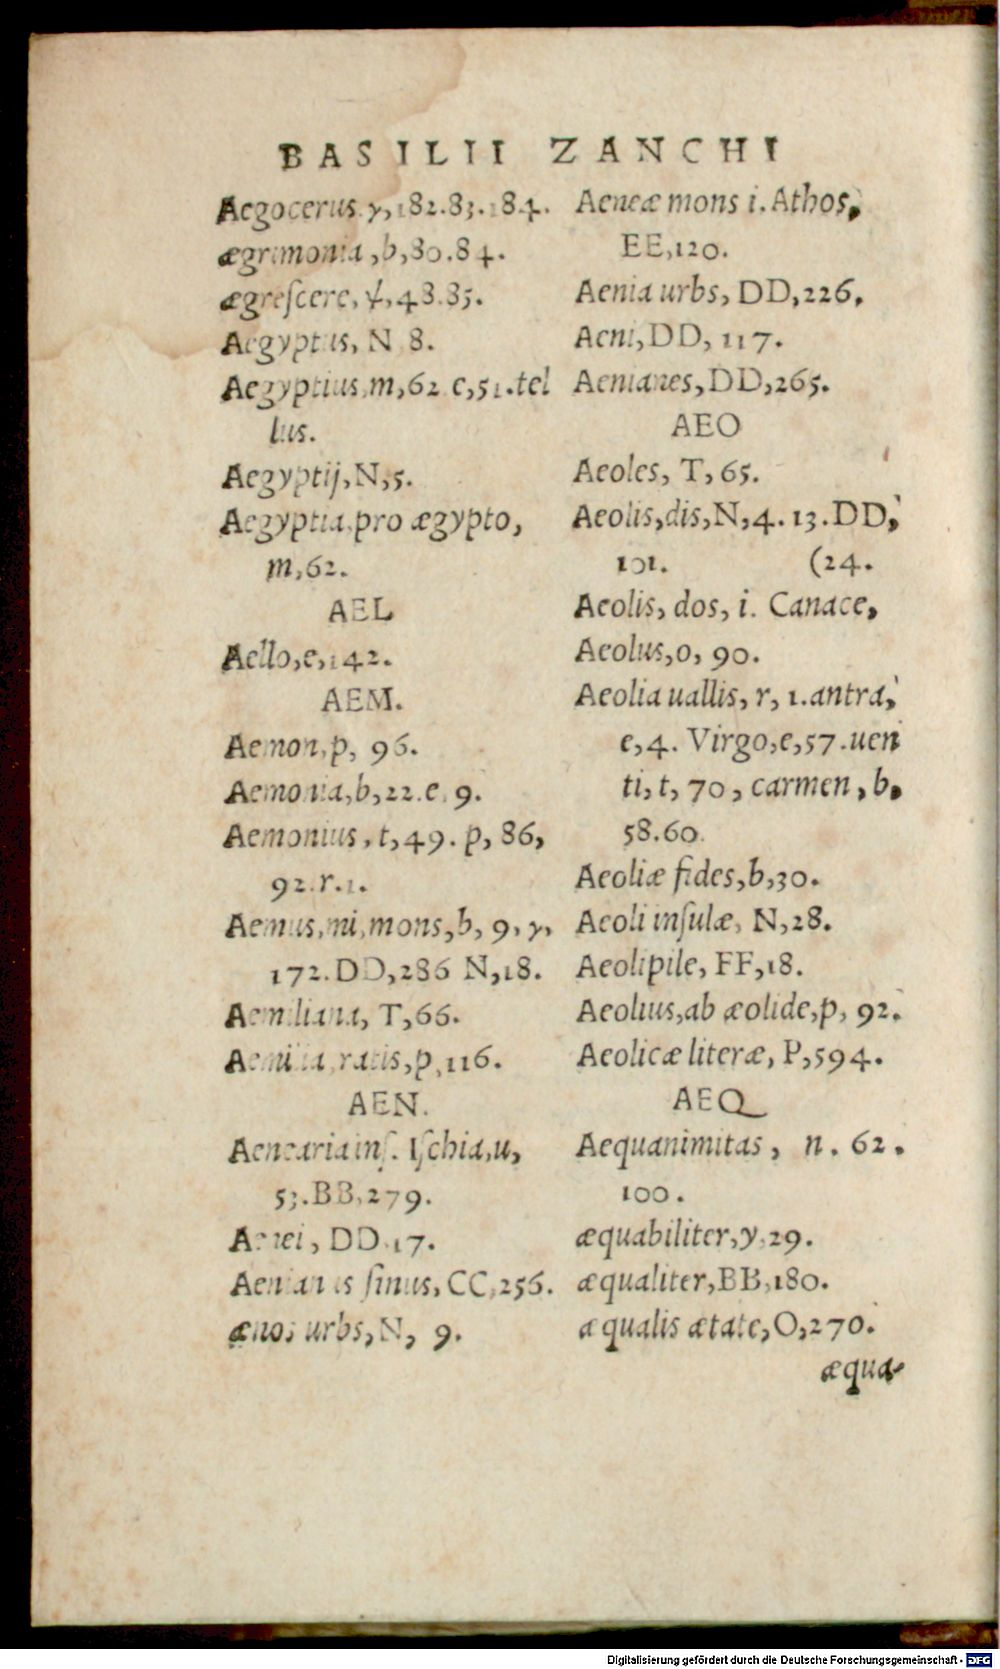 BASILII ZANCHI
Aegocerus. γ, 182.83.184.
ægrimonia, b, 80.84.
ægreſcere, ꝟ, 48.85.
Aegyptus, N 8.
Aegyptius, m, 62 e, 51. tel
lus.
Aegyptij, N, 5.
Aegyptia, pro ægypto,
m, 62.
AEL
Aello, e, 142.
AEM.
Aemon, p, 96.
Aemonia, b, 22. e, 9.
Aemonius, t, 49. p, 86,
92. r. 1.
Aemus, mi, mons, b, 9, γ,
172. DD, 286 N, 18.
Aemiliana, T, 66.
Aemilia, ratis, p, 116.
AEN.
Aenearia inſ. Iſchia, u,
53. BB, 279.
Aenei, DD. 17.
Aenianus ſinus, CC, 256.
ænos urbs, N, 9.
Aeneæ mons i. Athos,
EE, 120.
Aenia urbs, DD, 226.
Aeni, DD, 117.
Aenianes, DD, 265.
AEO
Aeoles, T, 65.
Aeolis, dis, N, 4. 13. DD,
101. (24.
Aeolis, dos, i. Canace,
Aeolus, o, 90.
Aeolia uallis, r, 1. antra,
e, 4. Virgo, e, 57. uen
ti, t, 70, carmen, b,
58.60.
Aeoliæ fides, b, 30.
Aeoli inſulæ, N, 28.
Aeolipile, FF, 18.
Aeolius, ab æolide, p, 92.
Aeolicæ literæ, P, 594.
AEQ
Aequanimitas, n. 62.
100.
æquabiliter, y, 29.
æqualiter, BB, 180.
æqualis ætate, O, 270.
æqua-
Digitalisierung gefördert durch die Deutsche Forschungsgemeinschaft - DFG